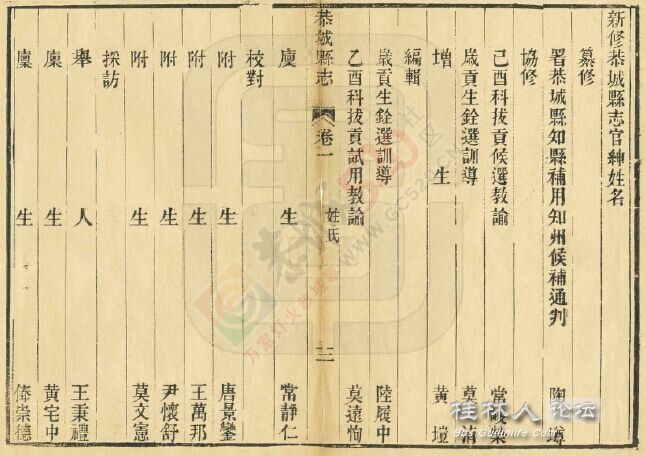 新修恭城縣志官紳姓名
纂修
署恭城縣知縣補用知州候補通判 陶壿
協修
己酉科拔貢候選教諭 常
歲貢生銓選訓導 莫
增生 黃塏
編輯
歲貢生銓選訓導 陸履中
乙酉科拔貢試用教諭 莫遠恂
恭城縣志 卷一 姓氏 二
廩生 常靜仁
校對
附生 唐景鑾
附生 王萬邦
附生 尹懷舒
附生 莫文憲
採訪
舉人 王秉禮
廩生 黃宅中
廩生 俸崇德
桂林人论坛